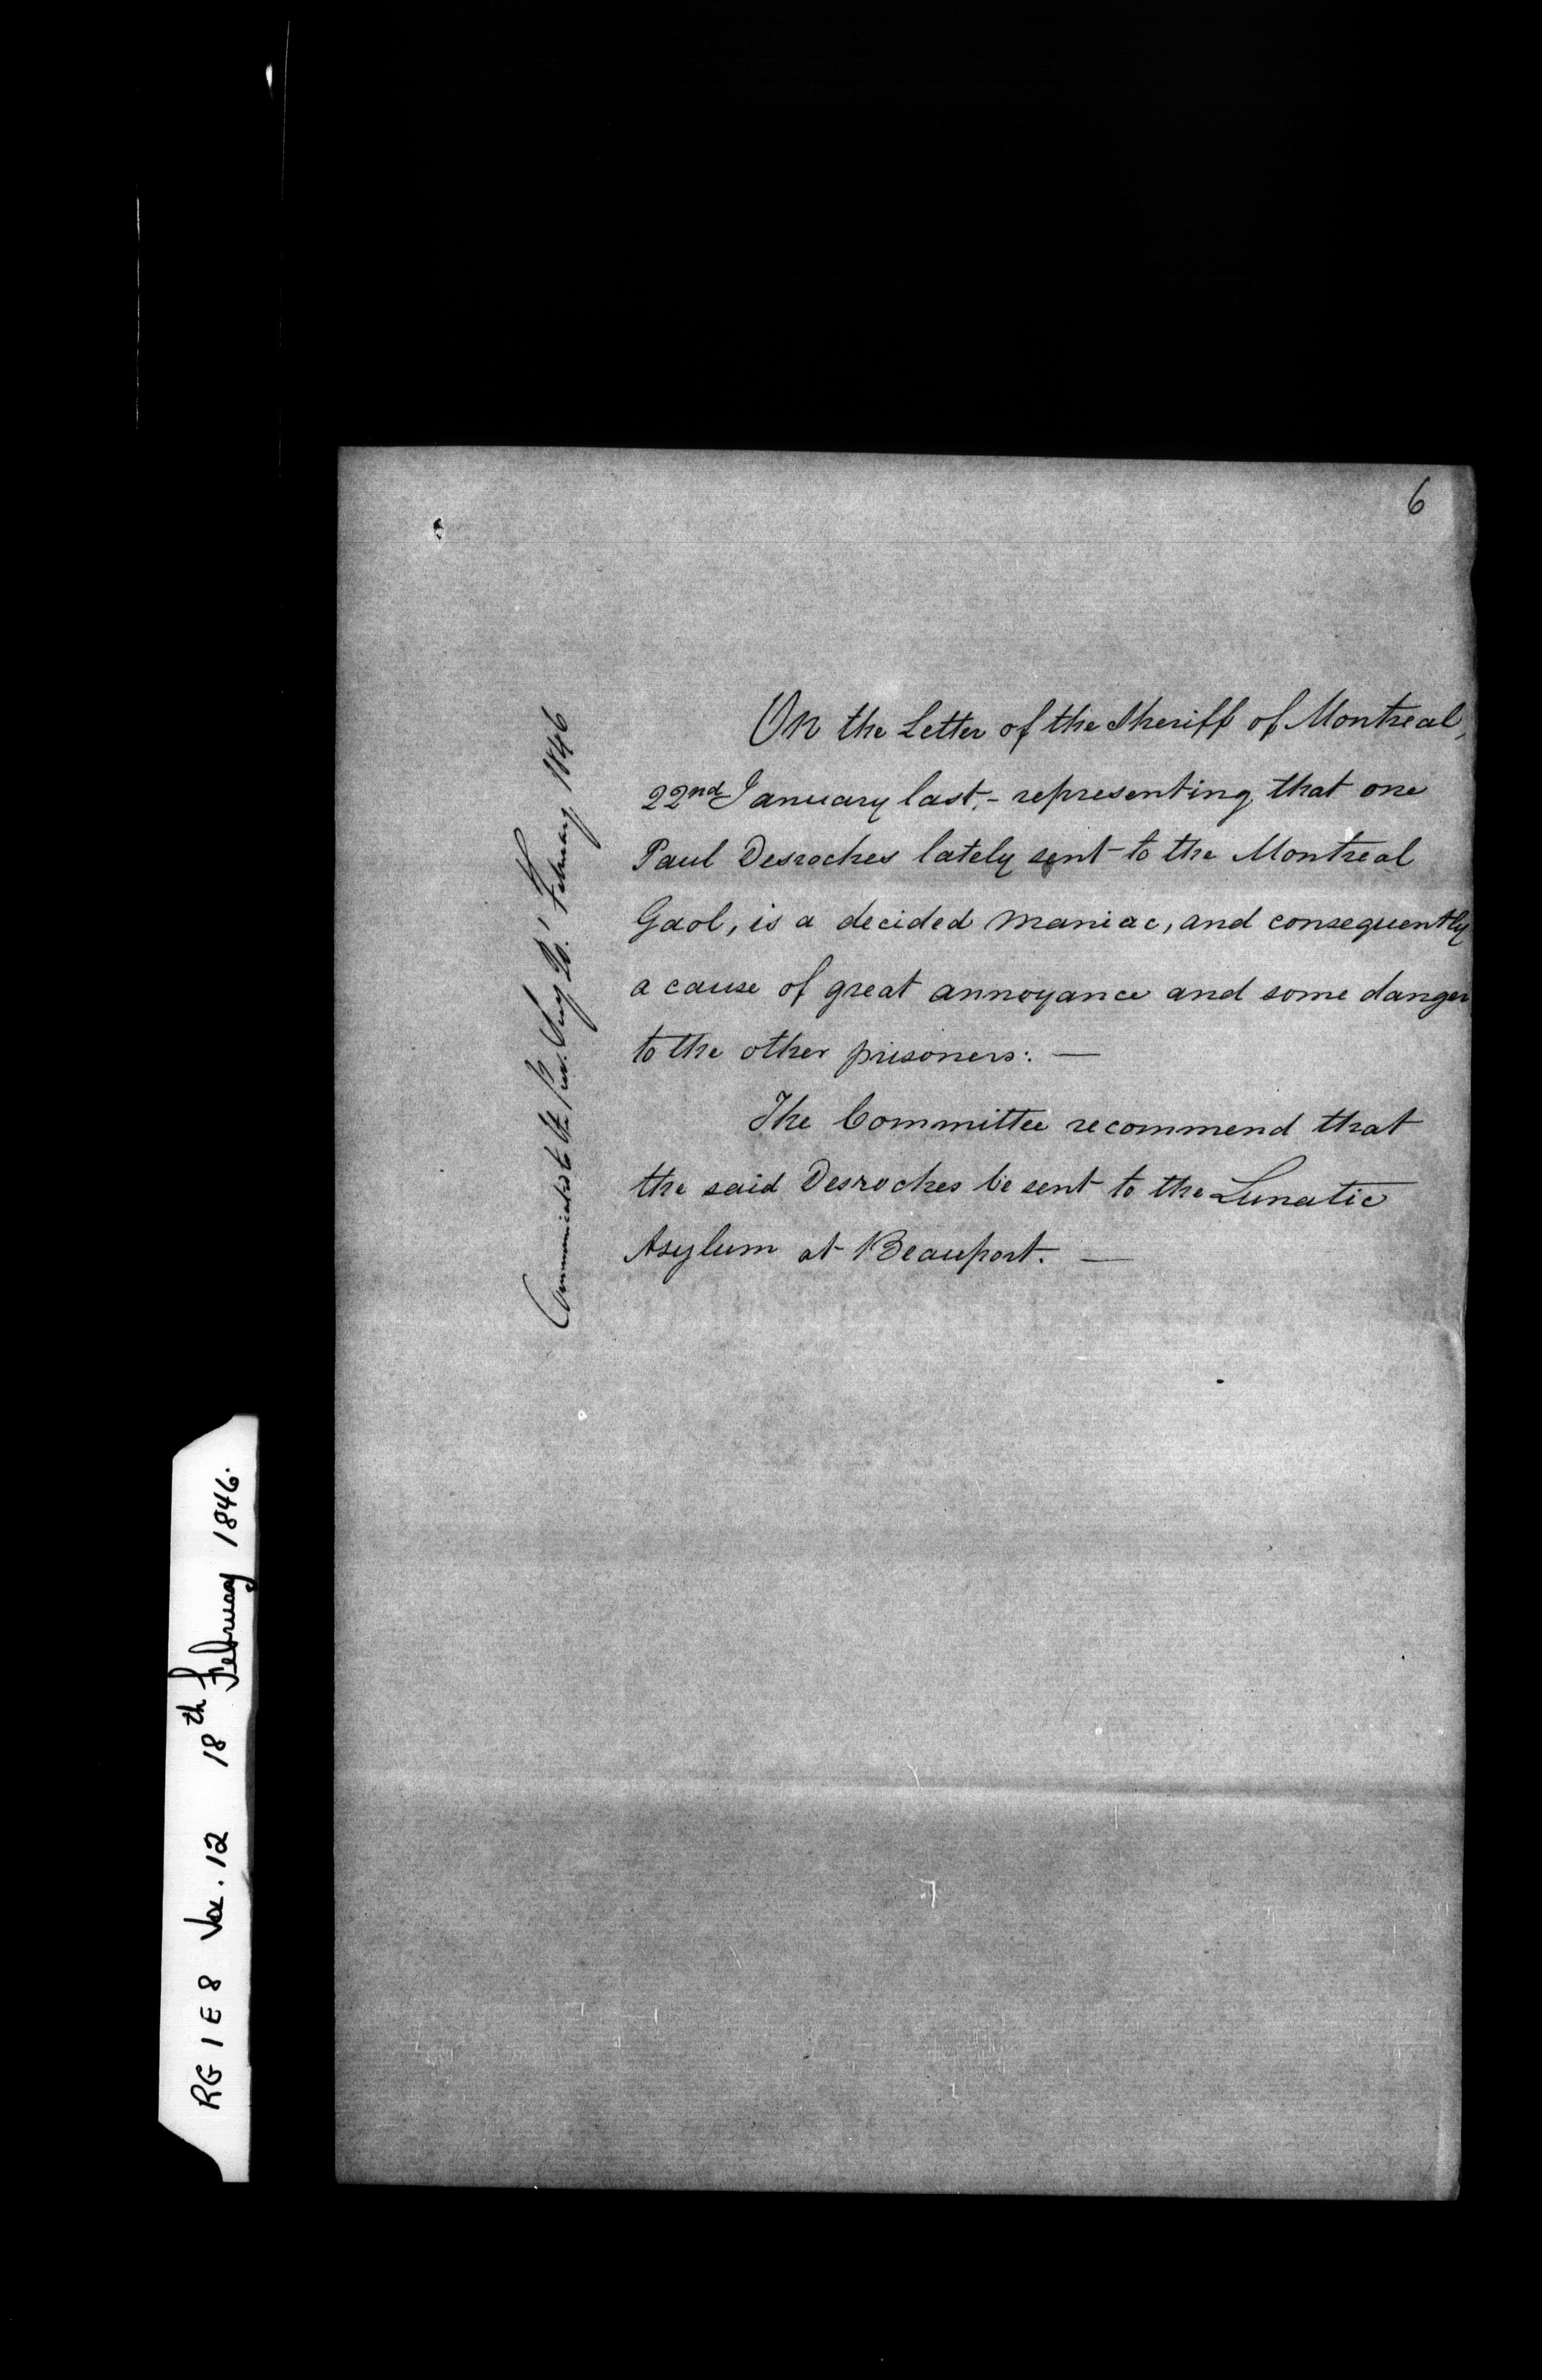 6
On the Letter of the Sheriff of Montreal,
22nd January last,- representing that one
Paul Desroches lately sent to the Montreal
Gaol, is a decided Maniac, and consequently
a cause of great annoyance and some danger
to the other prisoners: —
The Committee recommend that
the said Desroches be sent to the Lunatic
Asylum at Beauport. —
Communicated to the February 1846
RG 1 E 8 Vol. 12 18th February 1846.